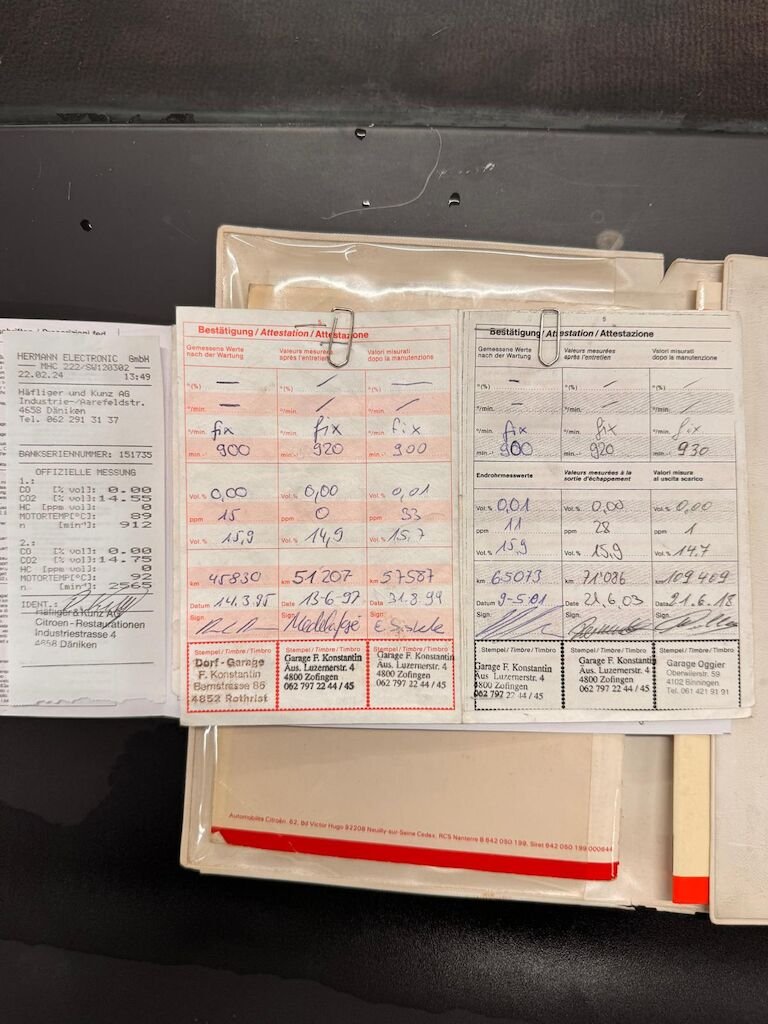 HERMANN ELECTRONIC GmbH
MHC 222/SW120302
22.02.24 13:49
Häfliger und Kunz AG
Industrie-/Aarefeldstr.
4658 Däniken
Tel. 062 291 31 37
BANKSERIENNUMMER: 151735
OFFIZIELLE MESSUNG
1.:
CO [% vol]: 0.00
CO2 [% vol]: 14.55
HC [ppm vol]: 0
MOTORTEMP[°C]: 89
n [min¹]: 912
2.:
CO [% vol]: 0.00
CO2 [% vol]: 14.75
HC [ppm vol]: 0
MOTORTEMP[°C]: 92
n [min¹]: 2565
IDENT.:
Häfliger & Kunz AG
Citroen-Restaurationen
Industriestrasse 4
4658 Däniken
5
Bestätigung / Attestation / Attestazione
Gemessene Werte nach der Wartung
Valeurs mesurées après l'entretien
Valori misurati dopo la manutenzione
°(%) — °(%) / °(%) —
°/min. — °/min. / °/min. /
°/min. fix °/min. fix °/min. fix
min.-¹ 900 min.-¹ 920 min.-¹ 900
Vol.% 0,00 Vol.% 0,00 Vol.% 0,01
ppm 15 ppm 0 ppm 33
Vol.% 15,9 Vol.% 14,9 Vol.% 15,7
km 45830 km 51'207 km 57587
Datum 14.3.95 Date 13-6-97 Data 31.8.99
Sign. Sign. Sign.
Stempel / Timbre / Timbro Stempel / Timbre / Timbro Stempel / Timbre / Timbro
Dorf-Garage
F. Konstantin
Bernstrasse 86
4852 Rothrist
Garage F. Konstantin
Aus. Luzernerstr. 4
4800 Zofingen
062 797 22 44 / 45
Garage F. Konstantin
Aus. Luzernerstr. 4
4800 Zofingen
062 797 22 44 / 45
5
Bestätigung / Attestation / Attestazione
Gemessene Werte nach der Wartung
Valeurs mesurées après l'entretien
Valori misurati dopo la manutenzione
°(%) — °(%) / °(%) /
°/min. — °/min. / °/min. /
°/min. fix °/min. fix °/min. fix
min.-¹ 900 min.-¹ 920 min.-¹ 930
Endrohrmesswerte
Valeurs mesurées à la sortie d'échappement
Valori misura al uscita scarico
Vol.% 0,01 Vol.% 0,00 Vol.% 0,00
ppm 11 ppm 28 ppm 1
Vol.% 15,9 Vol.% 15,9 Vol.% 14.7
km 65073 km 71'086 km 109469
Datum 9-5.01 Date 21,6,03 Data 21.6.13
Sign. Sign. Sign.
Stempel / Timbre / Timbro Stempel / Timbre / Timbro Stempel / Timbre / Timbro
Garage F. Konstantin
Aus. Luzernerstr. 4
4800 Zofingen
062 797 22 44 / 45
Garage F. Konstantin
Aus. Luzernerstr. 4
4800 Zofingen
062 797 22 44 / 45
Garage Oggier
Oberwilerstr. 59
4102 Binningen
Tel. 061 421 91 91
Automobiles Citroën. 62, Bd Victor Hugo 92208 Neuilly-sur-Seine Cedex. RCS Nanterre B 642 050 199. Siret 642 050 199 000644